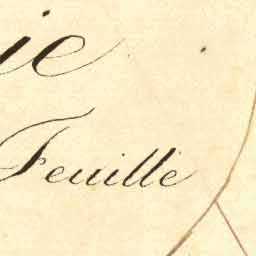 ie
Feuille